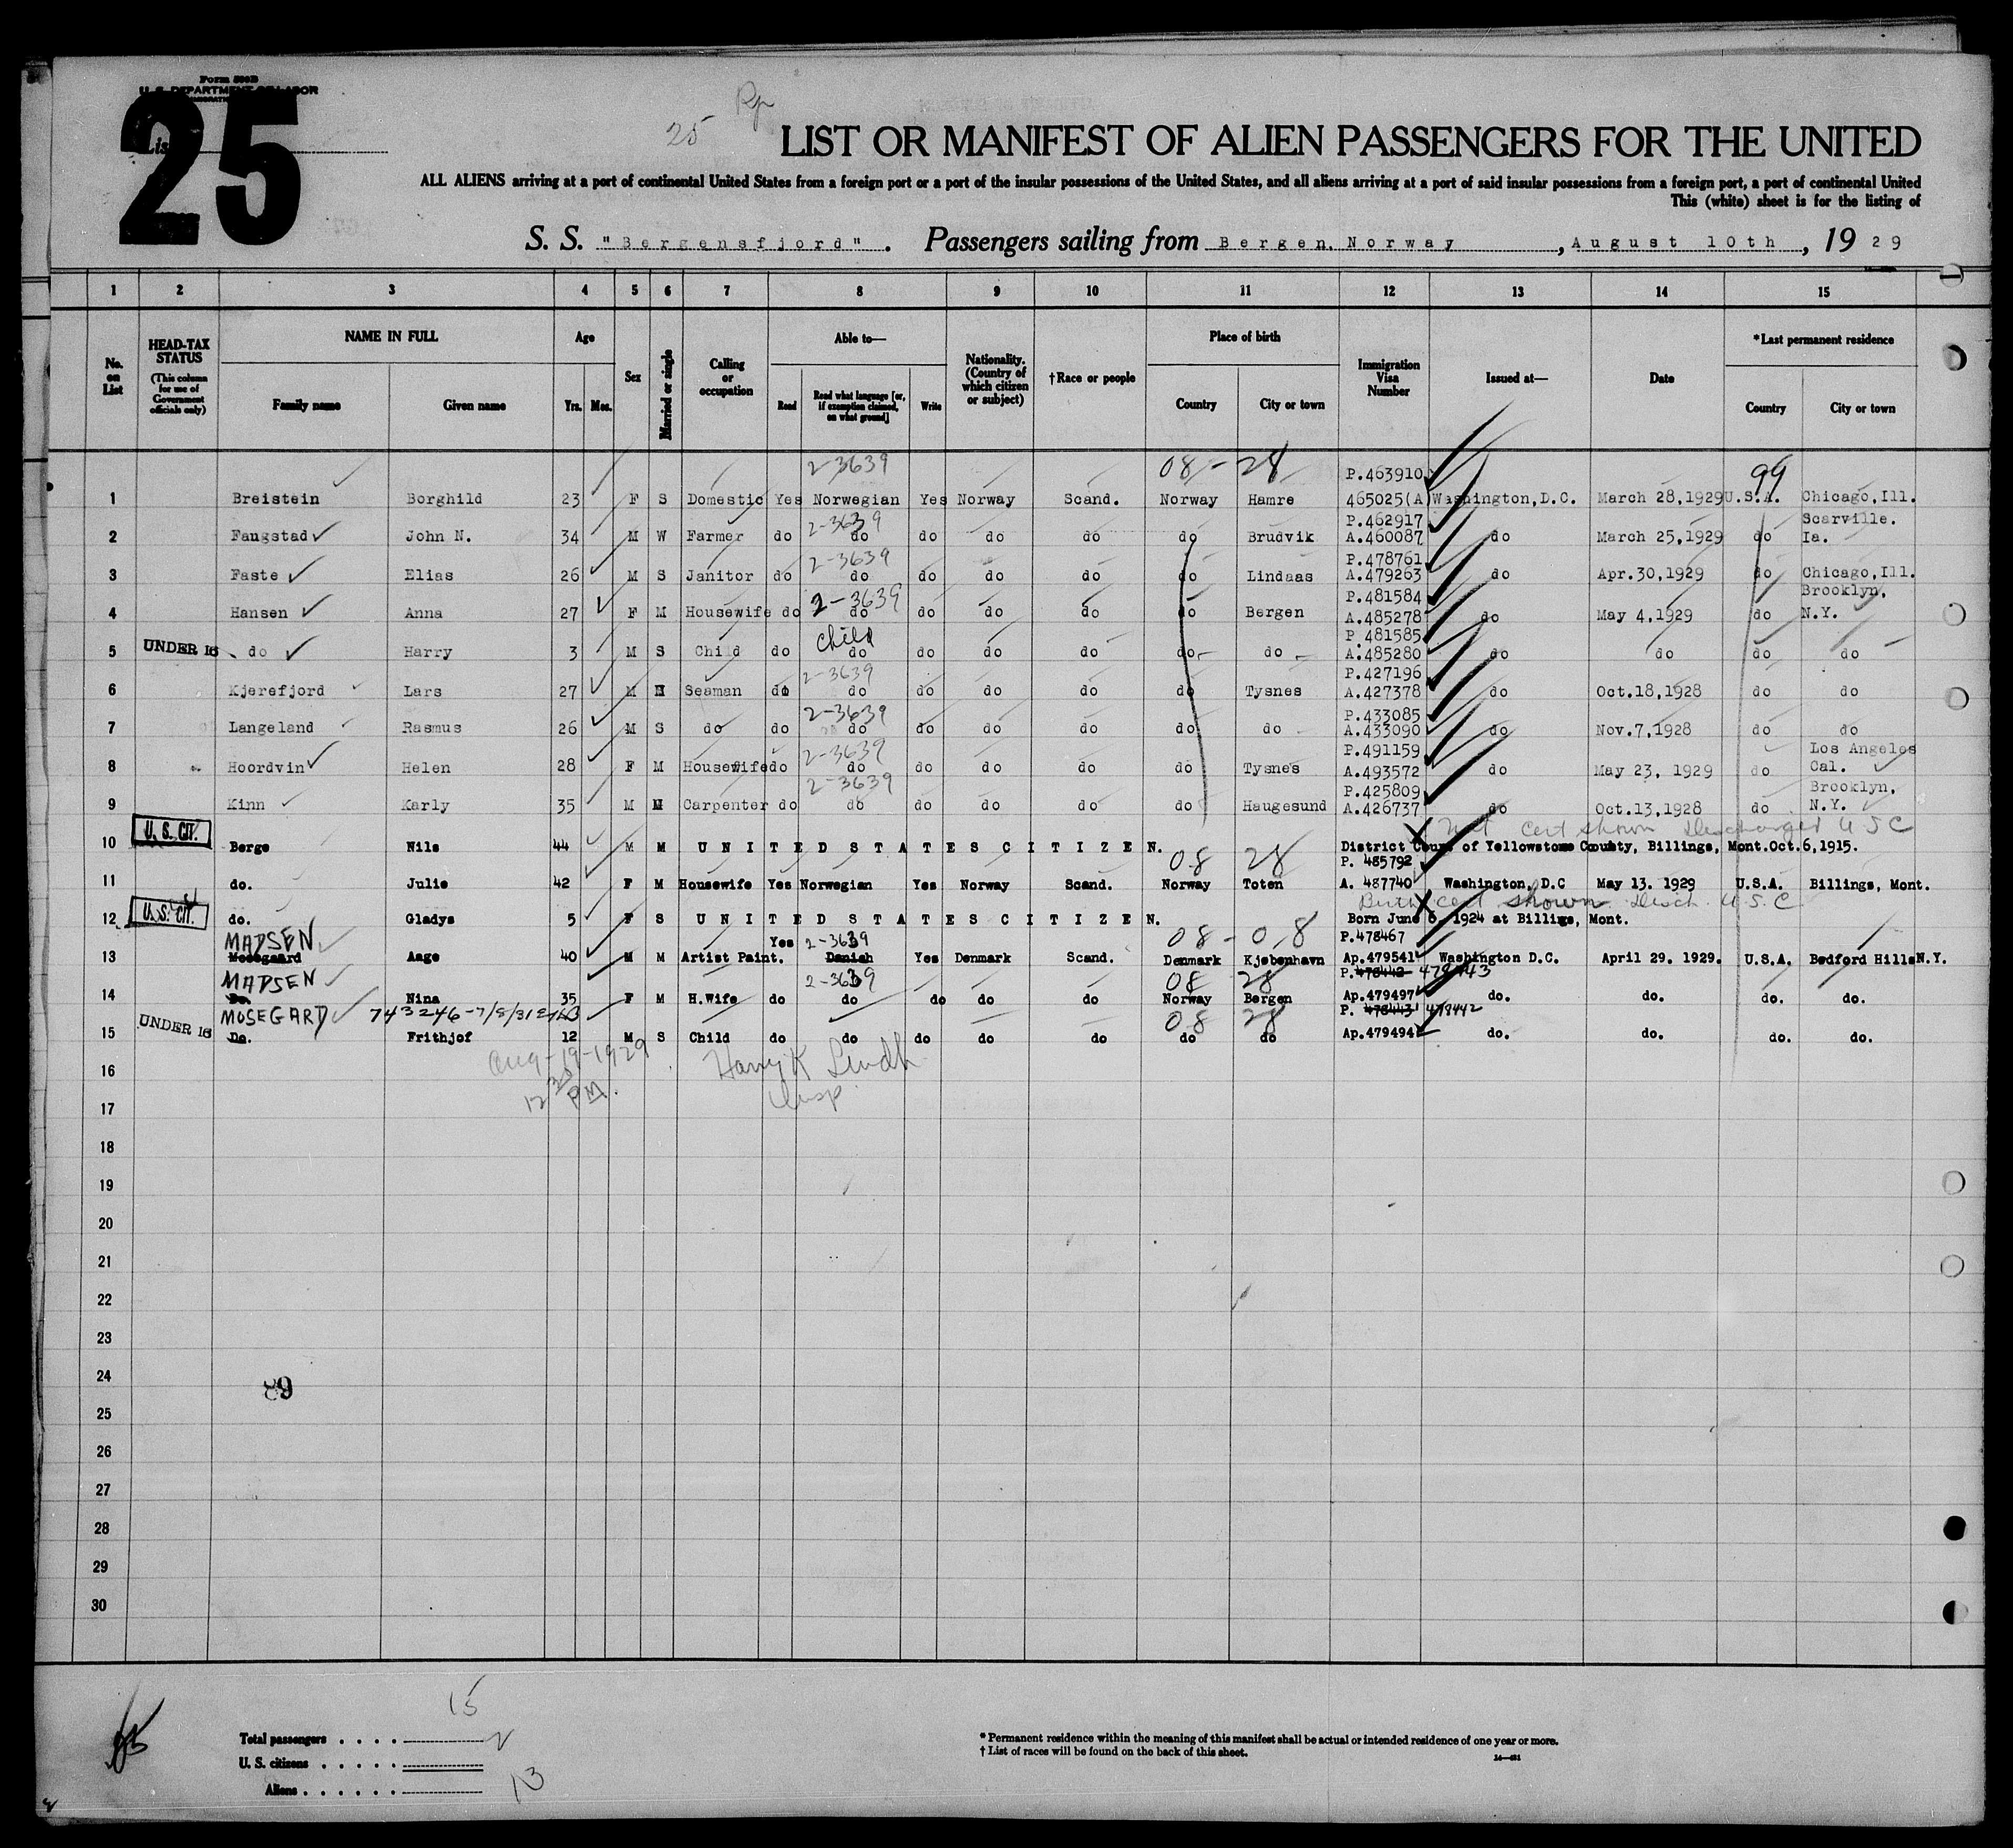 Form 500B
U. S. DEPARTMENT OF LABOR
25
25
LIST OR MANIFEST OF ALIEN PASSENGERS FOR THE UNITED
ALL ALIENS arriving at a port of continental United States from a foreign port or a port of the insular possessions of the United States, and all aliens arriving at a port of said insular possessions from a foreign port, a port of continental United
This (white) sheet is for the listing of
S. S. "Bergensfjord". Passengers sailing from Bergen, Norway, August 10th, 1929
1 2 3 4 5 6 7 8 9 10 11 12 13 14 15
No. on List HEAD-TAX STATUS (This column for use of Government officials only) NAME IN FULL Family name Given name Age Yrs. Mos. Sex Married or single Calling or occupation Able to— Read Read what language [or, if exemption claimed, on what ground] Write Nationality. (Country of which citizen or subject) †Race or people Place of birth Country City or town Immigration Visa Number Issued at— Date *Last permanent residence Country City or town
2-3639 08-28 P.463910 99
1 Breistein Borghild 23 F S Domestic Yes Norwegian Yes Norway Scand. Norway Hamre 465025(A) Washington,D.C. March 28,1929 U.S.A. Chicago,Ill.
2-3639 P.462917 Scarville.
2 Faugstad John N. 34 M W Farmer do do do do do do Brudvik A.460087 do March 25,1929 do Ia.
2-3639 P.478761
3 Faste Elias 26 M S Janitor do do do do do do Lindaas A.479263 do Apr.30,1929 do Chicago,Ill.
2-3639 P.481584 Brooklyn,
4 Hansen Anna 27 F M Housewife do do do do do do Bergen A.485278 do May 4,1929 do N.Y.
Child P.481585
5 UNDER 16 do Harry 3 M S Child do do do do do do do A.485280 do do do do
2-3639 P.427196
6 Kjerefjord Lars 27 M M Seaman do do do do do do Tysnes A.427378 do Oct.18,1928 do do
2-3639 P.433085
7 Langeland Rasmus 26 M S do do do do do do do do A.433090 do Nov.7,1928 do do
2-3639 P.491159 Los Angeles
8 Hoordvin Helen 28 F M Housewife do do do do do do Tysnes A.493572 do May 23, 1929 do Cal.
2-3639 P.425809 Brooklyn,
9 Kinn Karly 35 M M Carpenter do do do do do do Haugesund A.426737 do Oct.13,1928 do N.Y.
Cert shown Discharged U S C
10 U. S. CIT. Berge Nils 44 M M UNITED STATES CITIZEN. District Court of Yellowstone County, Billings, Mont.Oct.6,1915.
08 28 P. 485792
11 do. Julie 42 F M Housewife Yes Norwegian Yes Norway Scand. Norway Toten A. 487740 Washington, D.C May 13. 1929 U.S.A. Billings, Mont.
Birth cert shown Disch. U.S.C.
12 U. S. CIT. do. Gladys 5 F S UNITED STATES CITIZEN. Born June 6, 1924 at Billings, Mont.
MADSEN Yes 2-3639 08-08 P.478467
13 Mosegaard Aage 40 M M Artist Paint. Danish Yes Denmark Scand. Denmark Kjøbenhavn Ap.479541 Washington D.C. April 29. 1929. U.S.A. Bedford Hills N.Y.
MADSEN 2-3639 08 28 P.478442 478443
14 Do. Nina 35 F M H.Wife do do do do do Norway Bergen Ap.479497 do. do. do. do.
MOSEGARD 08 28 P. 478443 478442
15 UNDER 16 Do. Frithjof 12 M S Child do do do do do do do Ap.479494 do. do. do. do.
Aug-19-1929 Harry K Lindh
12 30 PM. Insp
16
17
18
19
20
21
22
23
24
25
26
27
28
29
30
89
15
Total passengers . . . . 15
U. S. citizens . . . . . 2
Aliens . . . . . . 13
* Permanent residence within the meaning of this manifest shall be actual or intended residence of one year or more.
† List of races will be found on the back of this sheet.